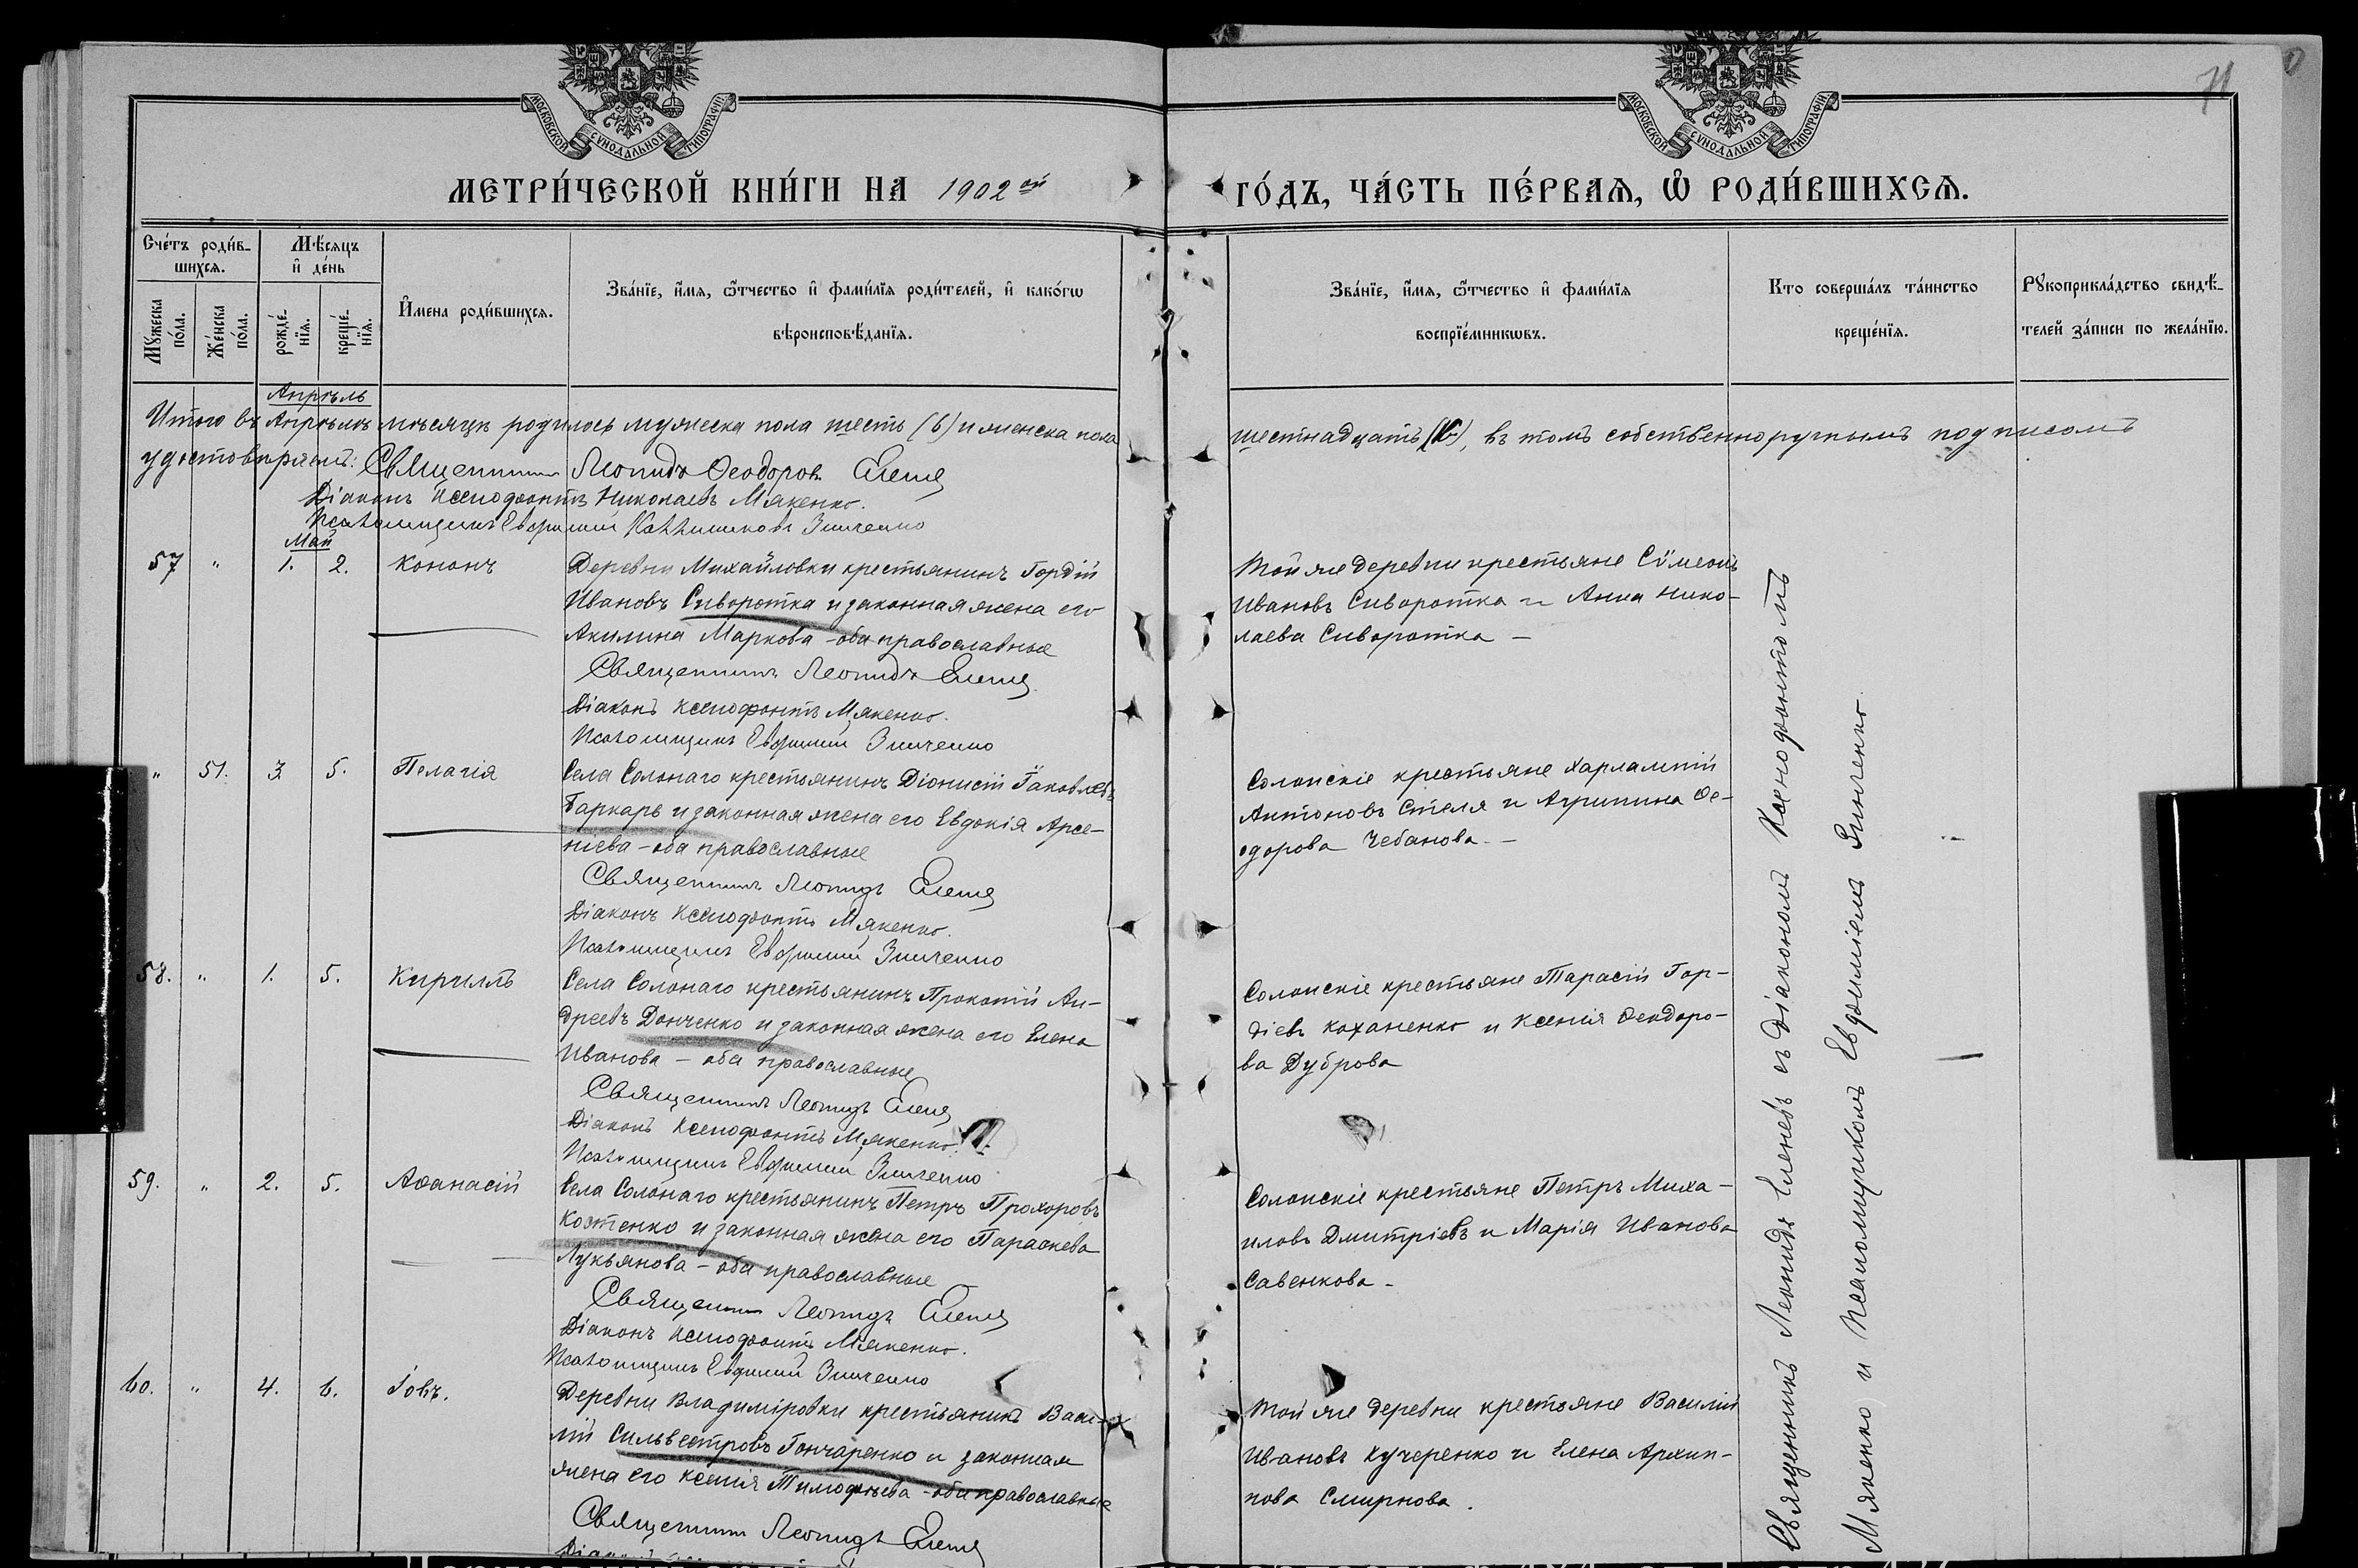 71
МОСКОВСКОЙ СѴНОДАЛЬНОЙ ТИПОГРАФІИ
МОСКОВСКОЙ СѴНОДАЛЬНОЙ ТИПОГРАФІИ
МЕТРИ́ЧЕСКОЙ КНИ́ГИ НА 1902 ой
ГО́ДЪ, ЧА́СТЬ ПЕ́РВАѦ, Ѡ҆ РОДИ́ВШИХСѦ.
Сче́тъ роди́в-
шихсѧ.
Мѣ́сѧцъ
и҆ де́нь
Мꙋ́жеска
по́ла.
Же́нска
по́ла.
рожде́-
нїѧ.
креще́-
нїѧ.
И҆мена роди́вшихсѧ.
Зва́нїе, и҆́мѧ, ѻ҆́тчество и҆ фами́лїѧ роди́телей, и҆ како́гѡ
вѣроисповѣ́данїѧ.
Зва́нїе, и҆́мѧ, ѻ҆́тчество и҆ фами́лїѧ
воспрїе́мникѡвъ.
Кто соверша́лъ та́инство
креще́нїѧ.
Рꙋкоприкла́дство свидѣ́-
телей за́писи по жела́нїю.
Апрѣль
Итого въ Апрѣлѣ мѣсяцѣ родилось мужеска пола шесть (6) и женска пола
шестнадцать (16), въ томъ собственноручнымъ подписомъ
удостовѣряемъ: Священникъ Леонидъ Ѳеодоровъ Еленев
Діаконъ Ксенофонтъ Николаевъ Мякенко.
Псаломщикъ Евфимій Зинченко
Май
57 " 1. 2. Кононъ
Деревни Михайловки крестьянинъ Гордій
Ивановъ Сиворотка и законная жена его
Акилина Маркова - оба православные
Священникъ Леонидъ Еленев
Діаконъ Ксенофонтъ Мякенко.
Псаломщикъ Евфимій Зинченко
Той же деревни крестьяне Сѵмеонъ
Ивановъ Сиворотка и Анна Нико-
лаева Сиворотка -
" 51. 3. 5. Пелагія
Села Солонаго крестьянинъ Діонисій Іаковлевъ
Баркарь и законная жена его Евдокія Арсе-
ніева - оба православные
Священникъ Леонидъ Еленев
Діаконъ Ксенофонтъ Мякенко.
Псаломщикъ Евфимій Зинченко
Солонскіе крестьяне Харлампій
Антоновъ Стеля и Агрипина Ѳе-
одорова Чебанова. -
58. " 1. 5. Кириллъ
Села Солонаго крестьянинъ Прокопій Ан-
дреевъ Донченко и законная жена его Елена
Иванова - оба православные
Священникъ Леонидъ Еленев
Діаконъ Ксенофонтъ Мякенко.
Псаломщикъ Евфимій Зинченко
Солонскіе крестьяне Тарасій Гор-
діевъ Коханенко и Ксенія Ѳеодоро-
ва Дуброва
59. " 2. 5. Аѳанасій
Села Солонаго крестьянинъ Петръ Прохоровъ
Костенко и законная жена его Параскева
Лукьянова - оба православные
Священникъ Леонидъ Еленев
Діаконъ Ксенофонтъ Мякенко.
Псаломщикъ Евфимій Зинченко
Солонскіе крестьяне Петръ Миха-
иловъ Дмитріевъ и Марія Иванова
Савенкова -
60. " 4. 6. Іовъ.
Деревни Владиміровки крестьянинъ Васи-
лій Сильвестровъ Гончаренко и законная
жена его Ксенія Тимофѣева - оба православные
Священникъ Леонидъ Еленев
Той же деревни крестьяне Василій
Ивановъ Кучеренко и Елена Архип-
пова Смирнова.
Священникъ Леонидъ Еленевъ съ Діакономъ Ксенофонтомъ
Мякенко и Псаломщикомъ Евфиміемъ Зинченко